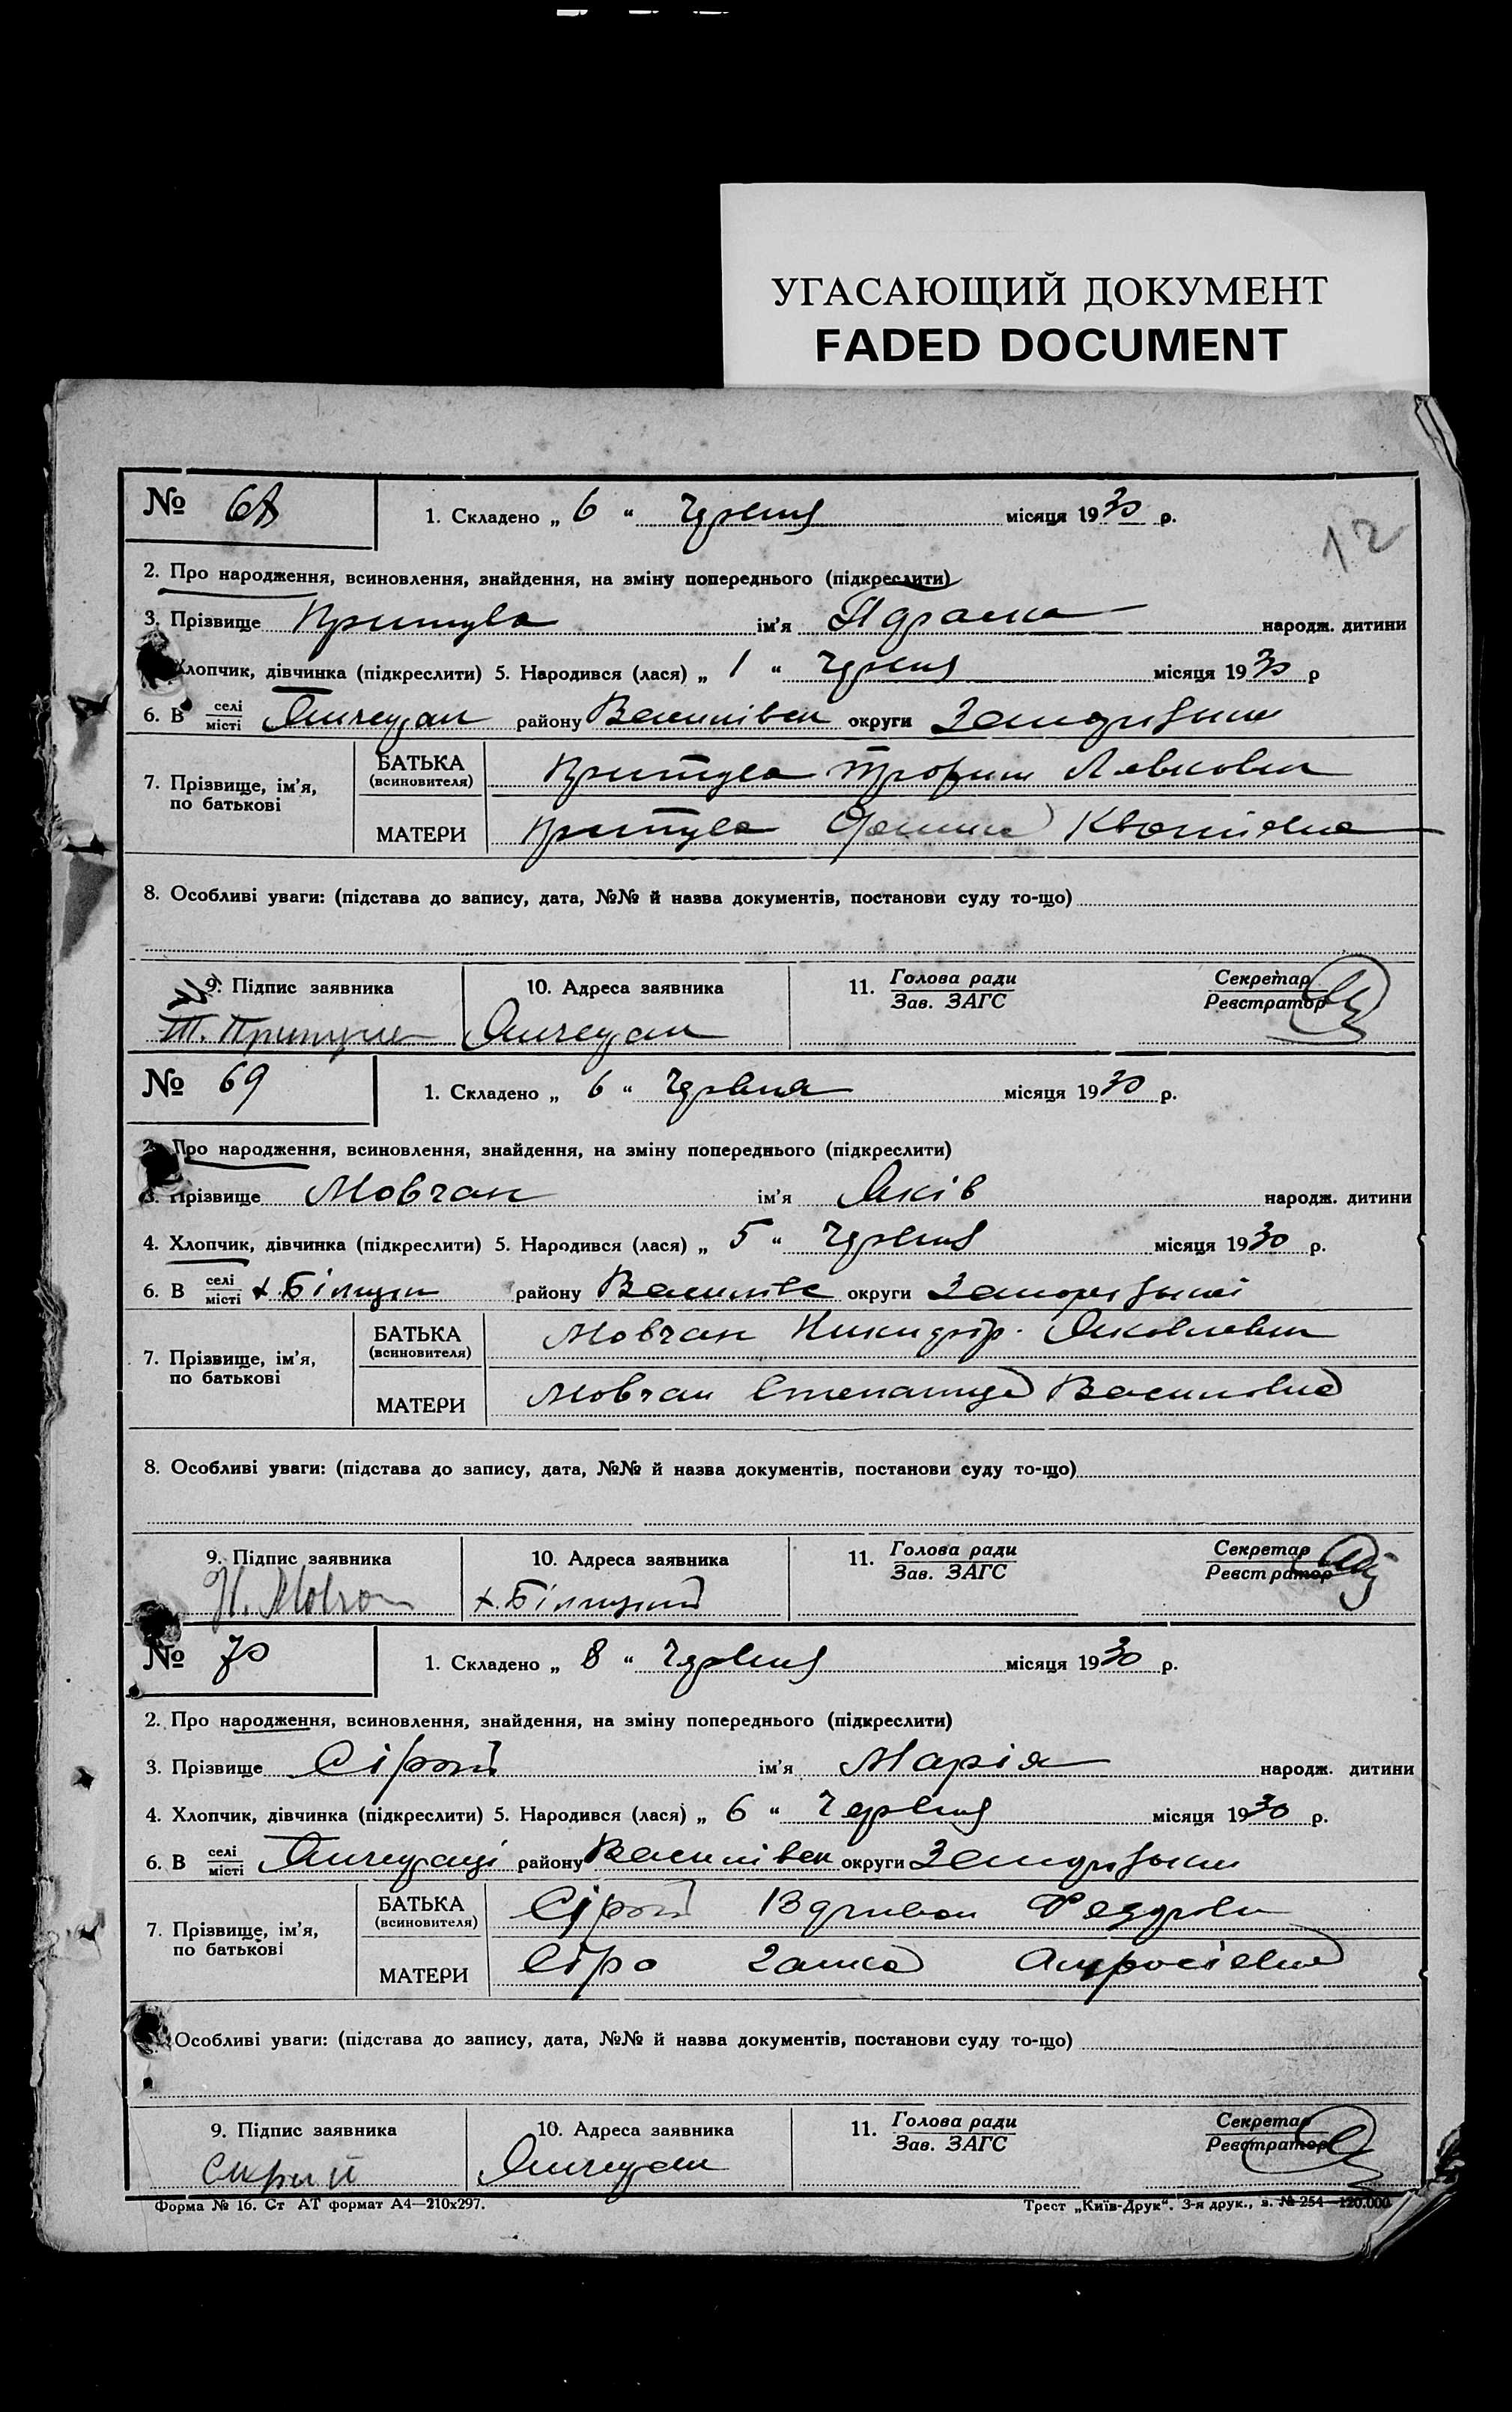 УГАСАЮЩИЙ ДОКУМЕНТ
FADED DOCUMENT
12
№ 68
1. Складено „ 6 “ Червня місяця 1930 р.
2. Про народження, всиновлення, знайдення, на зміну попереднього (підкреслити)
3. Прізвище Притула ім'я народж. дитини
Хлопчик, дівчинка (підкреслити) 5. Народився (лася) „ 1 “ Червня місяця 1930 р
6. В селі/місті району Василівськ округи Запорізької
7. Прізвище, ім'я, по батькові
БАТЬКА (всиновителя) Притула Трофим
МАТЕРИ Притула
8. Особливі уваги: (підстава до запису, дата, №№ й назва документів, постанови суду то-що)
9. Підпис заявника
10. Адреса заявника
11. Голова ради/Зав. ЗАГС
Секретар/Реєстратор
Т. Притула
№ 69
1. Складено „ 6 “ Червня місяця 1930 р.
2. Про народження, всиновлення, знайдення, на зміну попереднього (підкреслити)
3. Прізвище Мовчан ім'я Яків народж. дитини
4. Хлопчик, дівчинка (підкреслити) 5. Народився (лася) „ 5 “ Червня місяця 1930 р.
6. В селі/місті х. району Василівс округи Запорізької
7. Прізвище, ім'я, по батькові
БАТЬКА (всиновителя) Мовчан Никифор Яковлевич
МАТЕРИ Мовчан Степанида Василівна
8. Особливі уваги: (підстава до запису, дата, №№ й назва документів, постанови суду то-що)
9. Підпис заявника
10. Адреса заявника
11. Голова ради/Зав. ЗАГС
Секретар/Реєстратор
Н. Мовчан х.
№ 70
1. Складено „ 8 “ Червня місяця 1930 р.
2. Про народження, всиновлення, знайдення, на зміну попереднього (підкреслити)
3. Прізвище Сірий ім'я Марія народж. дитини
4. Хлопчик, дівчинка (підкреслити) 5. Народився (лася) „ 6 “ Червня місяця 1930 р.
6. В селі/місті району Василівськ округи Запорізької
7. Прізвище, ім'я, по батькові
БАТЬКА (всиновителя) Сірий
МАТЕРИ Сіра
Особливі уваги: (підстава до запису, дата, №№ й назва документів, постанови суду то-що)
9. Підпис заявника
10. Адреса заявника
11. Голова ради/Зав. ЗАГС
Секретар/Реєстратор
Сирий
Форма № 16. Ст АТ формат А4—210х297.
Трест „Київ-Друк“. 3-я друк., з. № 254—120.000